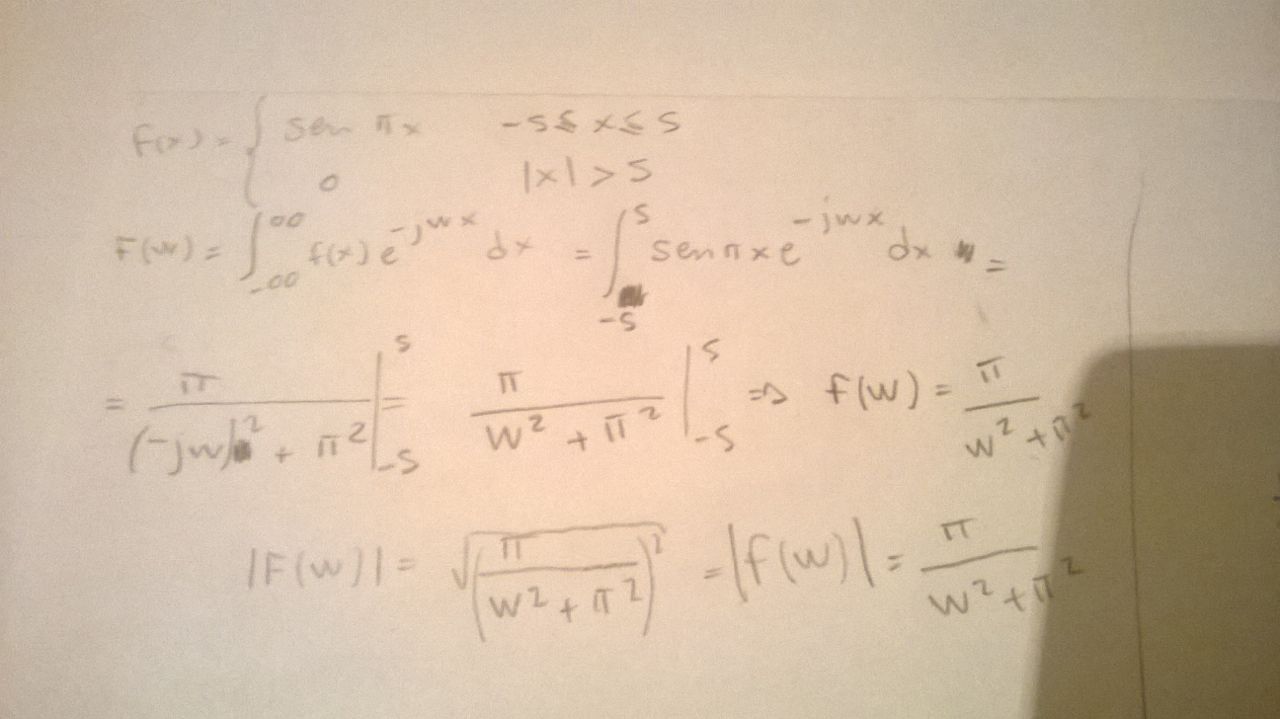 f(x) = { sen πx   -5 ≤ x ≤ 5
0   |x| > 5
F(w) = ∫_{-∞}^{∞} f(x) e^{-jwx} dx = ∫_{-5}^{5} sen πx e^{-jwx} dx =
= π / ((-jw)² + π²) |_{-5}^{5} = π / (w² + π²) |_{-5}^{5} ⇒ f(w) = π / (w² + π²)
|F(w)| = √(π / (w² + π²))² = |f(w)| = π / (w² + π²)